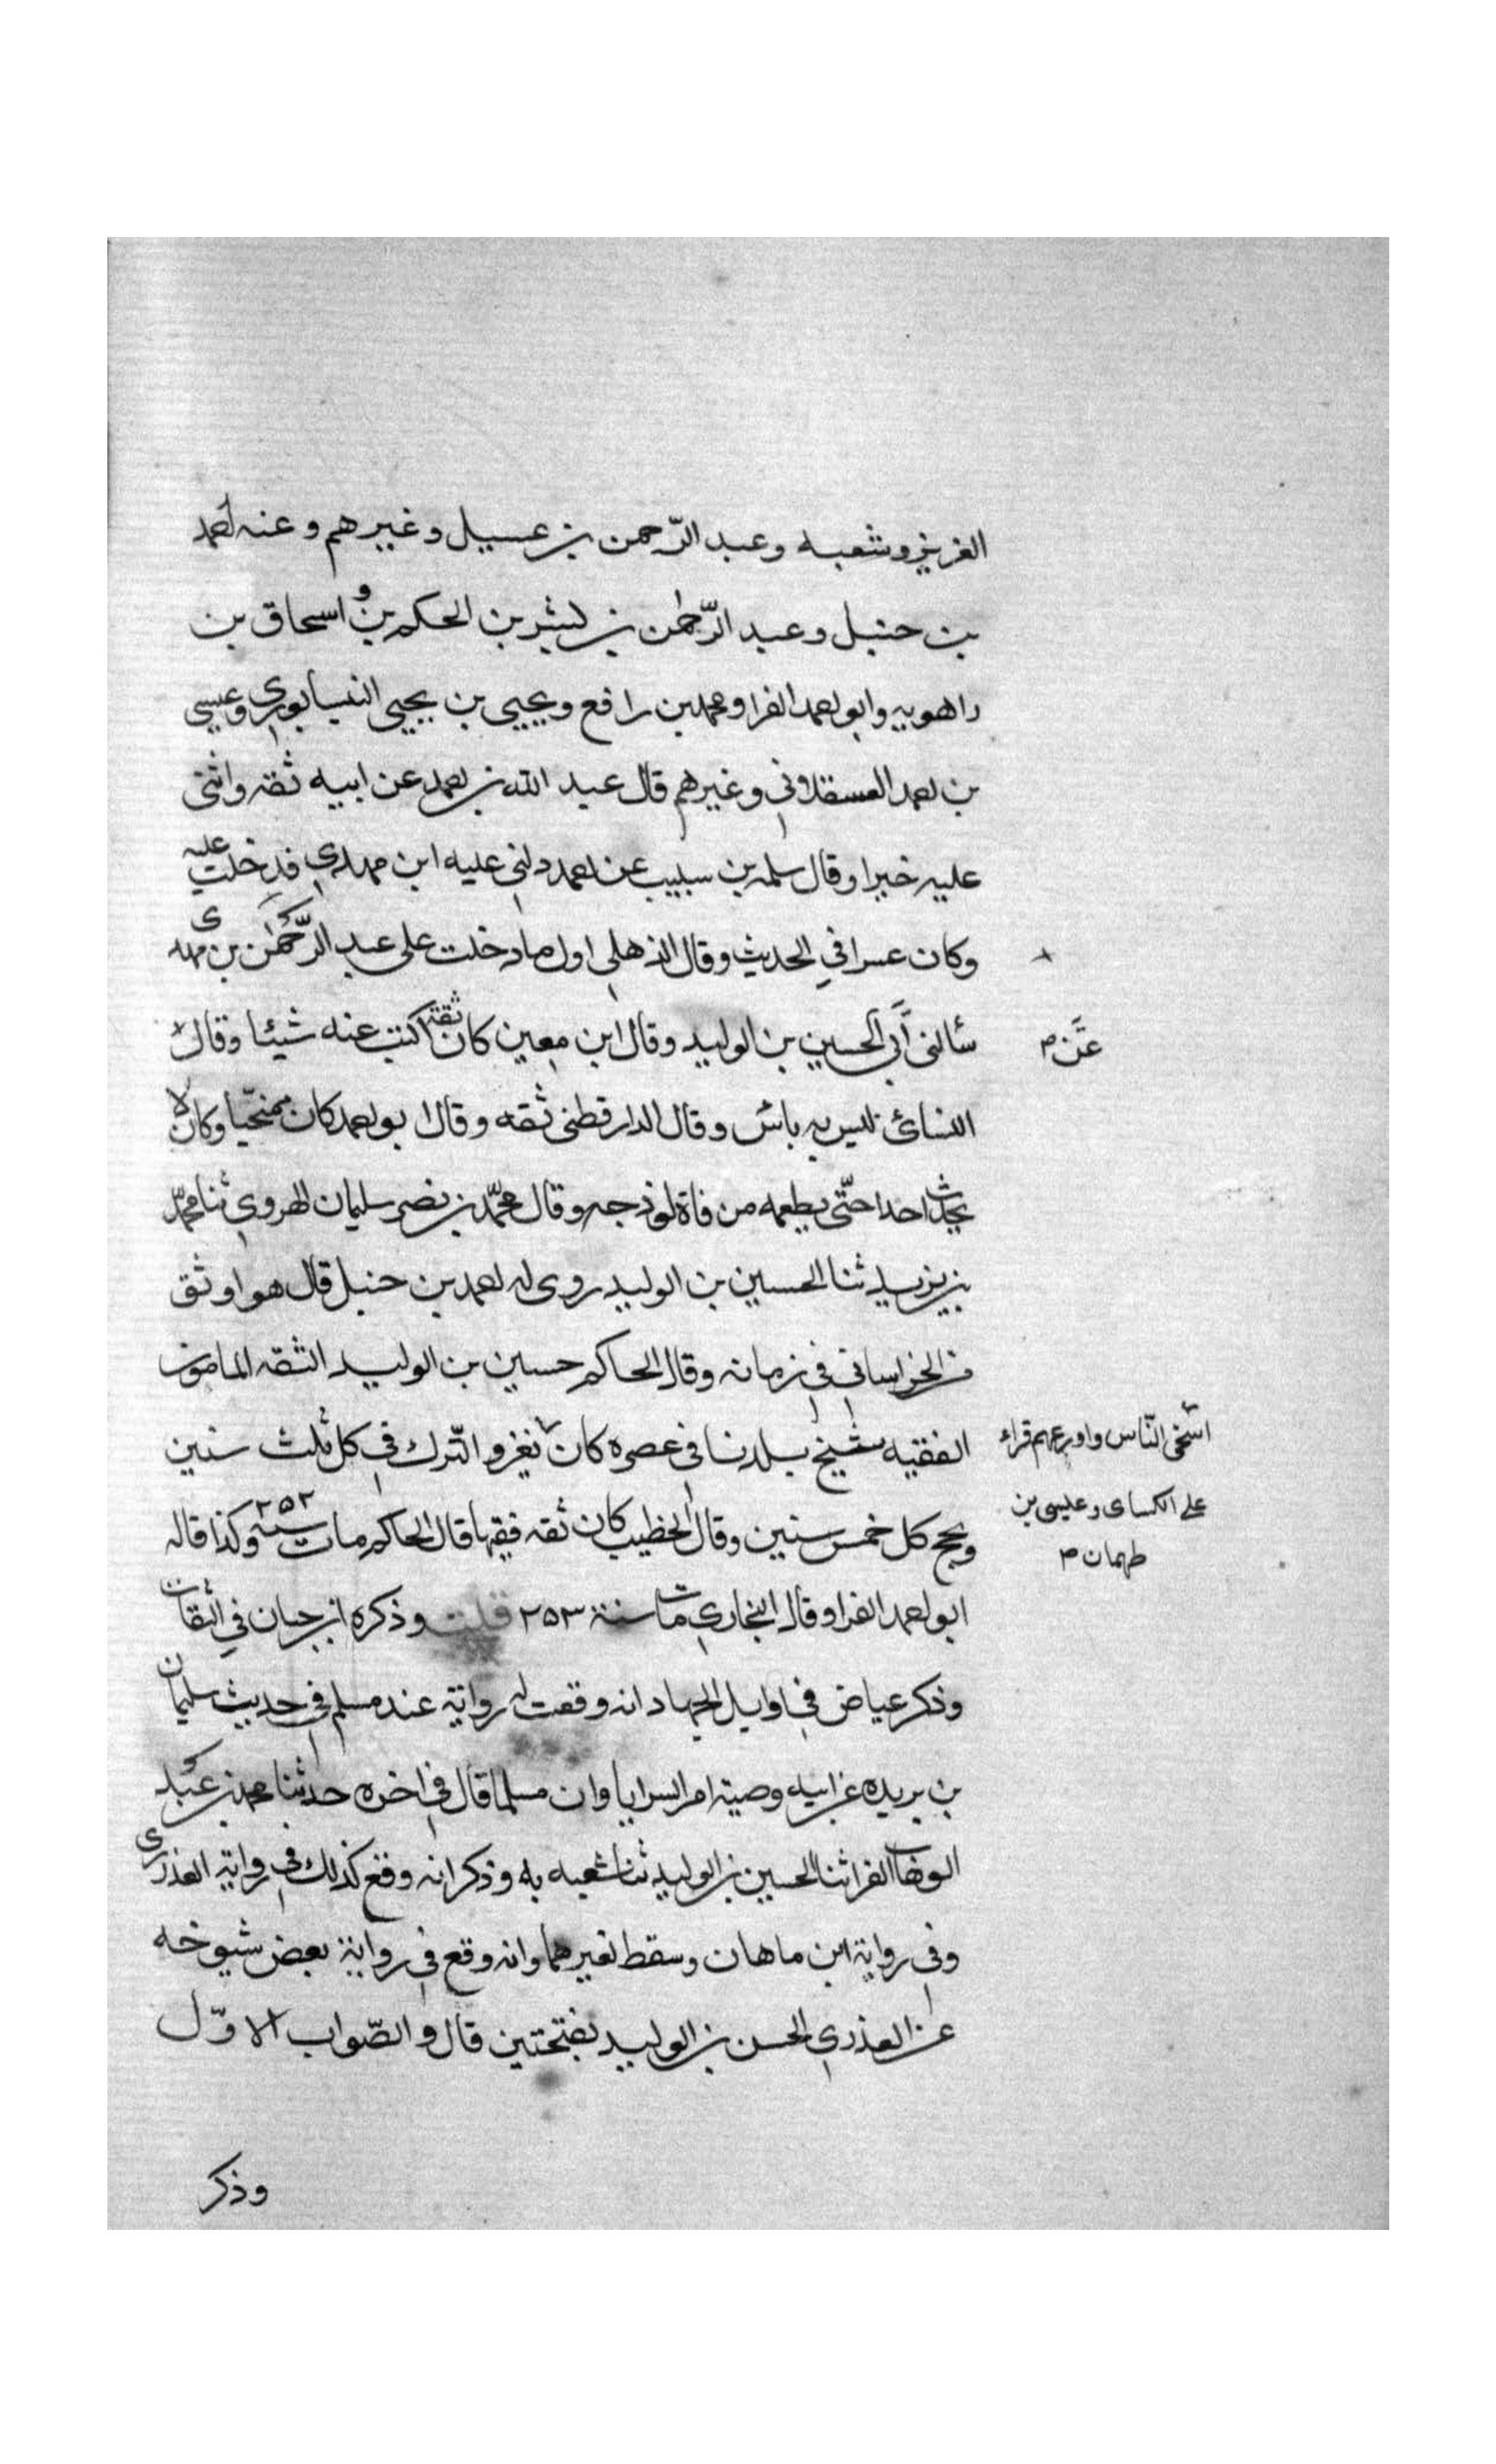 العزيز وشعبه وعبد الرّحمن بن عسيل وغيرهم وعنه احمد
بن حنبل وعبد الرّحمن بن بشر بن الحكم بن و اسحاق بن
راهويه وابو احمد الفرا ومحمد بن رافع ويحيى بن يحيى النيسابوري وعيسى
بن احمد العسقلاني وغيرهم قال عبد الله بن احمد عن ابيه ثقه واثنى
عليه خيرا وقال سلمه بن سبيب عن احمد دلني عليه ابن مهدي فدخلت عليه
وكان عسرا في الحديث وقال الذهلي اول ما دخلت على عبد الرّحمن بن مهدى
سألنى أبي الحسين بن الوليد وقال ابن معين كان ثقة اكتب عنه شيئا وقال
عن م
النسائ ليس به باس وقال الدارقطنى ثقه وقال ابو احمد كان وكان لا
يحدث احدا حتّى يطعمه من وقال محمّد بن نصر سليمان الهروي ثنا محمّد
بن يزيد ثنا الحسين بن الوليد روى له احمد بن حنبل قال هو اوثق
من الخراسانى في زمانه وقال الحاكم حسين بن الوليد الثقه المامون
الفقيه شيخ بلدنا في عصره كان يغزو التّرك في كل ثلث سنين
اسخى النّاس واورعهم قراء
على الكساى وعيسى بن
طهمان م
ويحج كل خمس سنين وقال الخطيب كان ثقه فقيها قال الحاكم مات سنة ٢٥٢ وكذا قاله
ابو احمد الفرا وقال البخاري مات سنة ٢٥٣ قلت وذكره ابن حبان في الثقات
وذكر عياض في اوايل الجهاد انه وقعت له رواية عند مسلم في حديث سليمان
بن بريده عن ابيه وصية امر السرايا وان مسلما قال في اخره حدثنا محمد بن عبد
الوهاب الفرا ثنا الحسين بن الوليد ثنا شعبه به وذكر انه وقع كذلك في رواية العذرى
وفي رواية ابن ماهان وسقط لغيرهما وانه وقع في رواية بعض شيوخه
عن العذري الحسن بن الوليد بفتحتين قال والصّواب الاوّل
وذكر